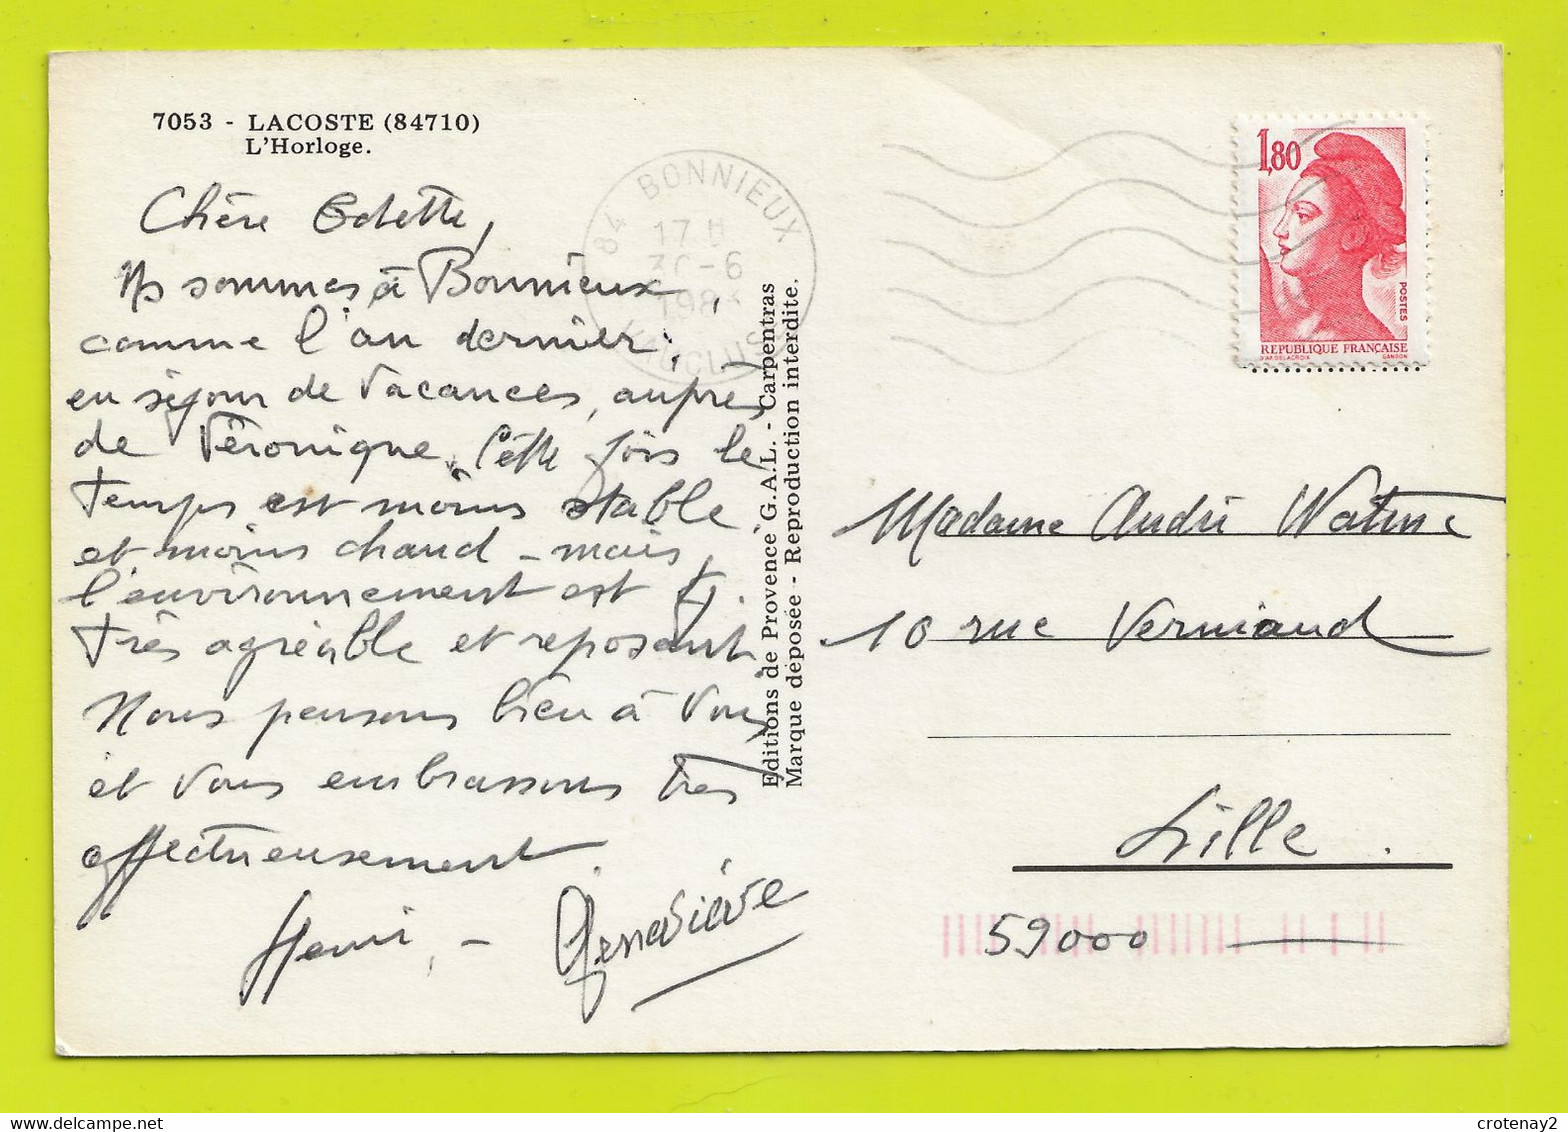 7053 - LACOSTE (84710)
L'Horloge.
Chère Odette,
Ns sommes à Bonnieux,
comme l'an dernier,
en séjour de vacances, auprès
de Véronique. Cette fois le
temps est moins stable
et moins chaud - mais,
l'environnement est
très agréable et reposant.
Nous pensons bien à Vous
et Vous embrassons très
affectueusement.
Henri, - Geneviève
84 BONNIEUX
17 H
30-6
198
VAUCLUSE
Editions de Provence G.A.L. - Carpentras
Marque déposée - Reproduction interdite.
1,80
POSTES
REPUBLIQUE FRANÇAISE
D'AP. DELACROIX GANDON
Madame André
10 rue Verniaud
Lille.
59000
crotenay2